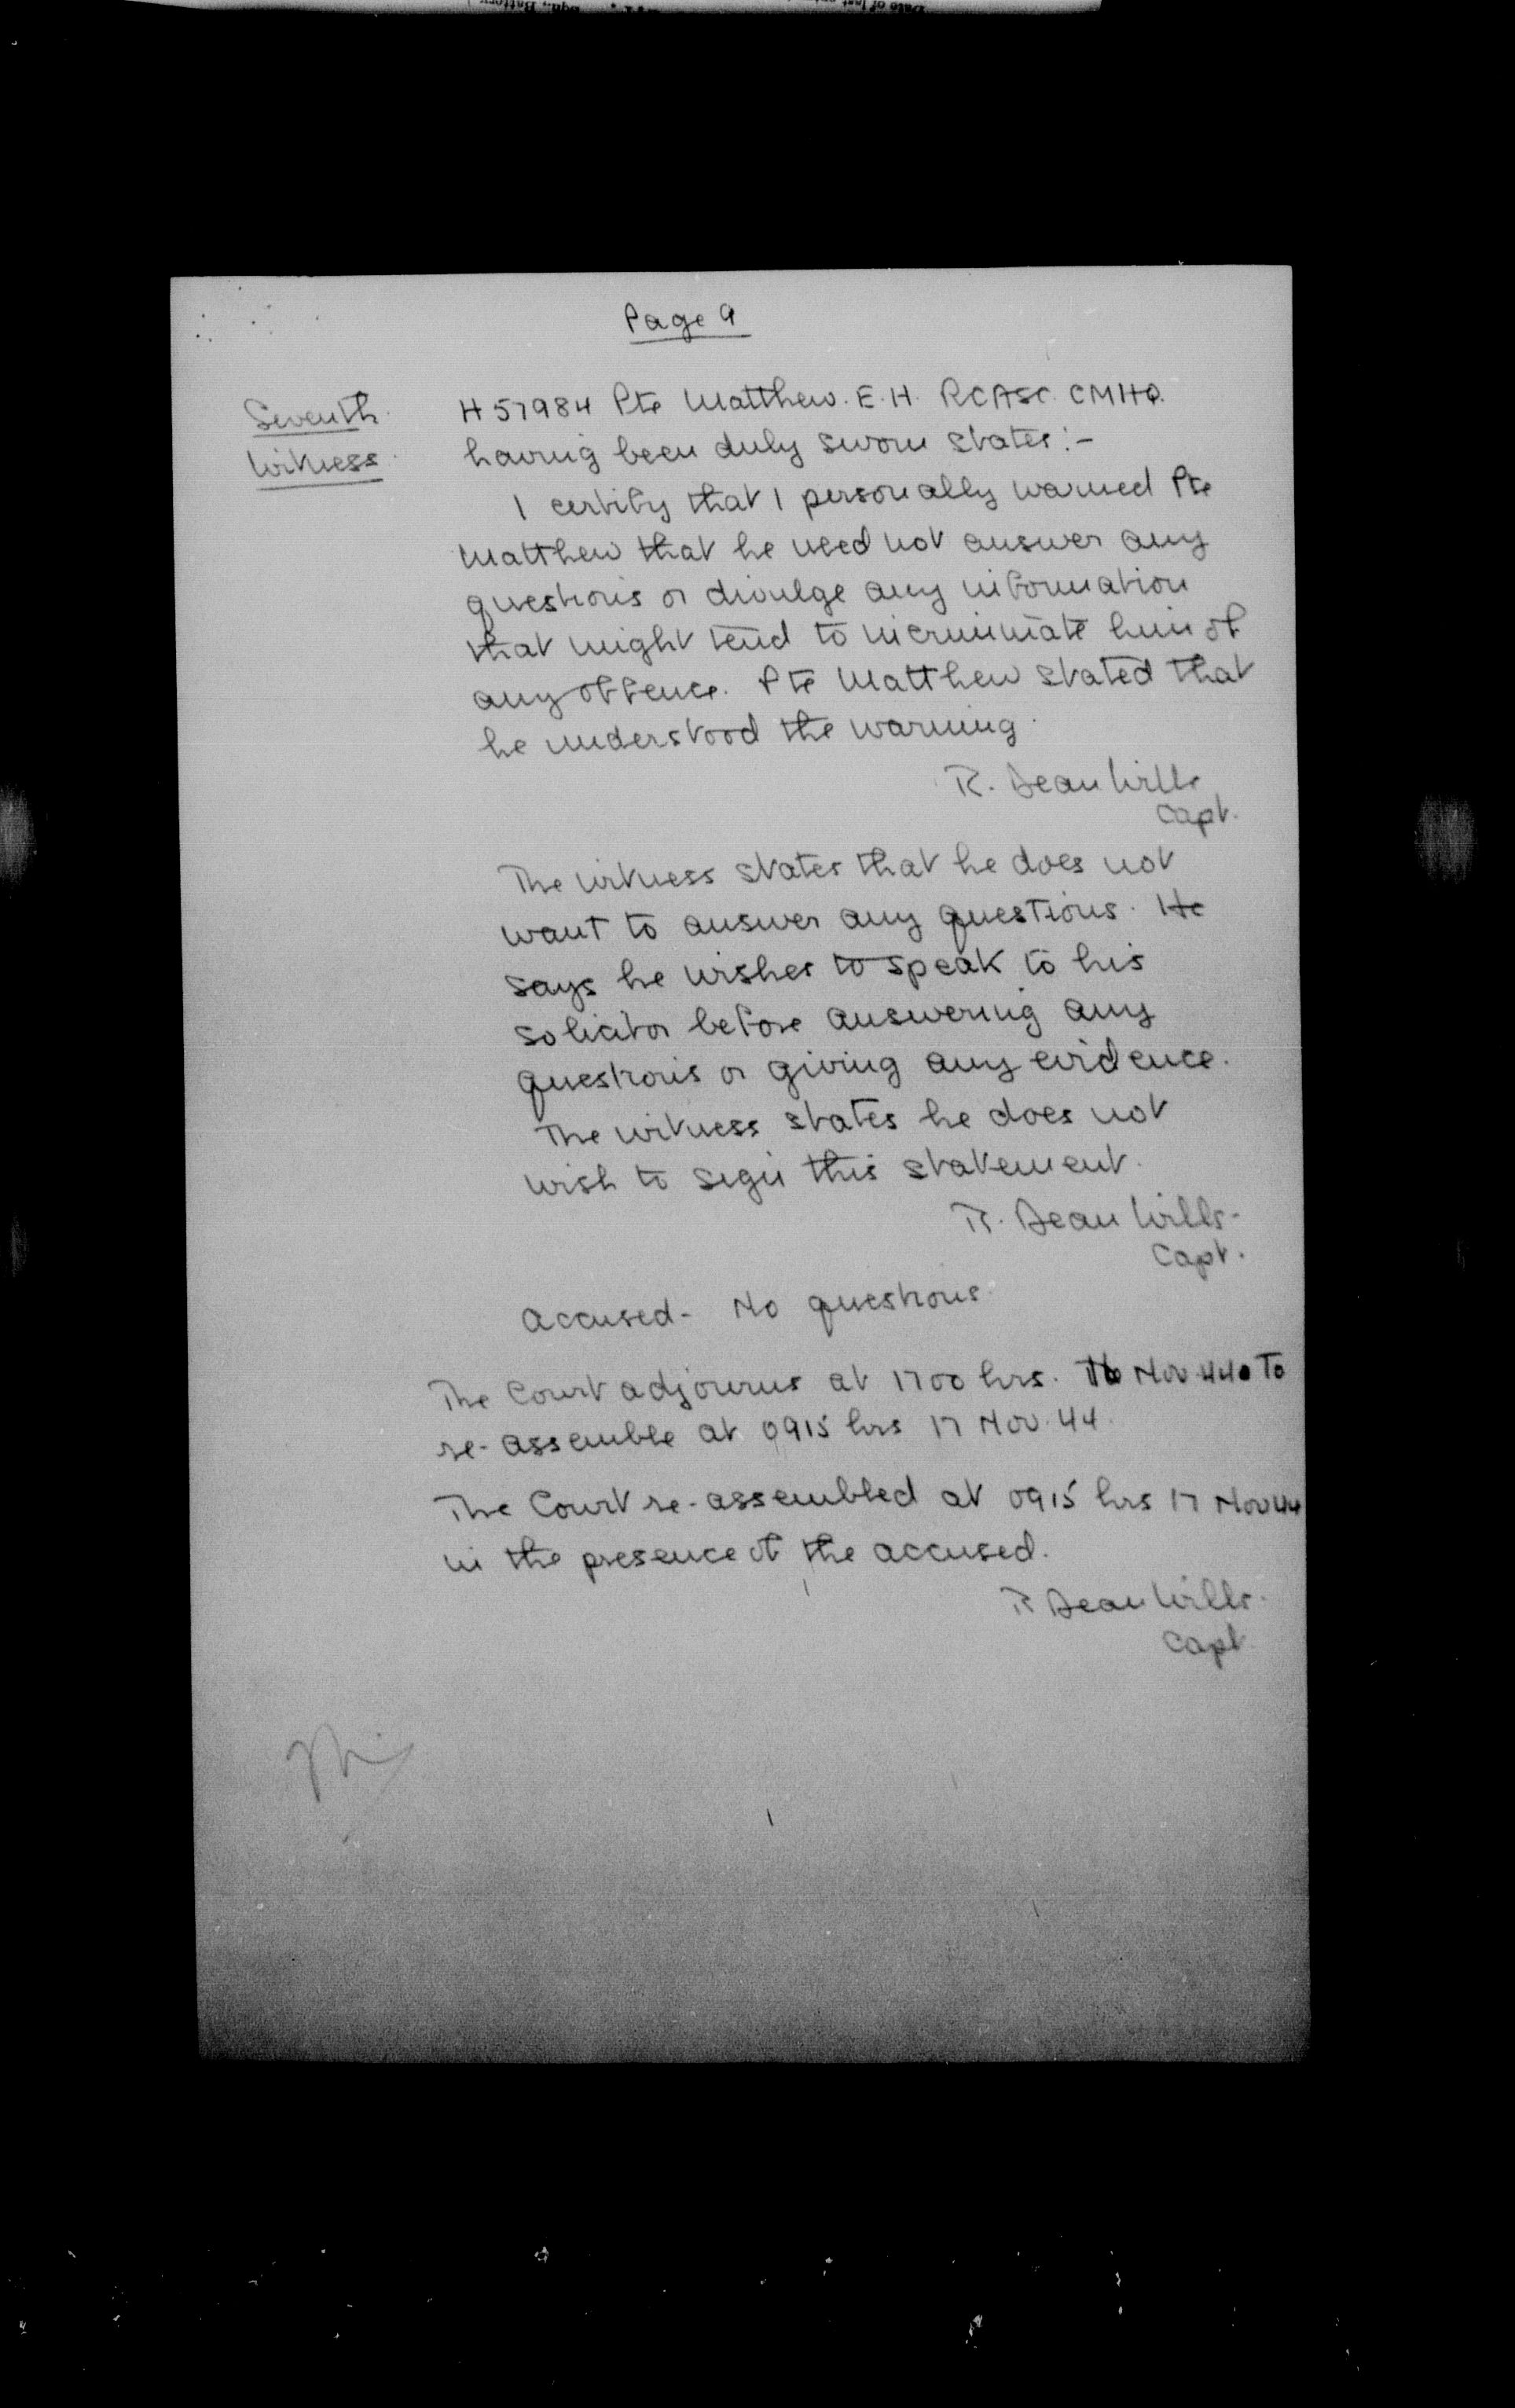 Page 9
Seventh Witness
H 57984 Pte Matthew. E.H. RCASC. CMHQ.
having been duly sworn states:-
I certify that I personally warned Pte
Matthew that he need not answer any
questions or divulge any information
that might tend to incriminate him of
any offence. Pte Matthew stated that
he understood the warning.
R. Dean Wills
Capt.
The witness states that he does not
want to answer any questions. He
says he wishes to speak to his
solicitor before answering any
questions or giving any evidence.
The witness states he does not
wish to sign this statement.
R. Dean Wills-
Capt.
Accused - No questions
The Court adjourns at 1700 hrs. 16 Nov 44 To
re-assemble at 0915 hrs 17 Nov. 44.
The Court re-assembled at 0915 hrs 17 Nov 44
in the presence of the accused.
R Dean Wills.
Capt